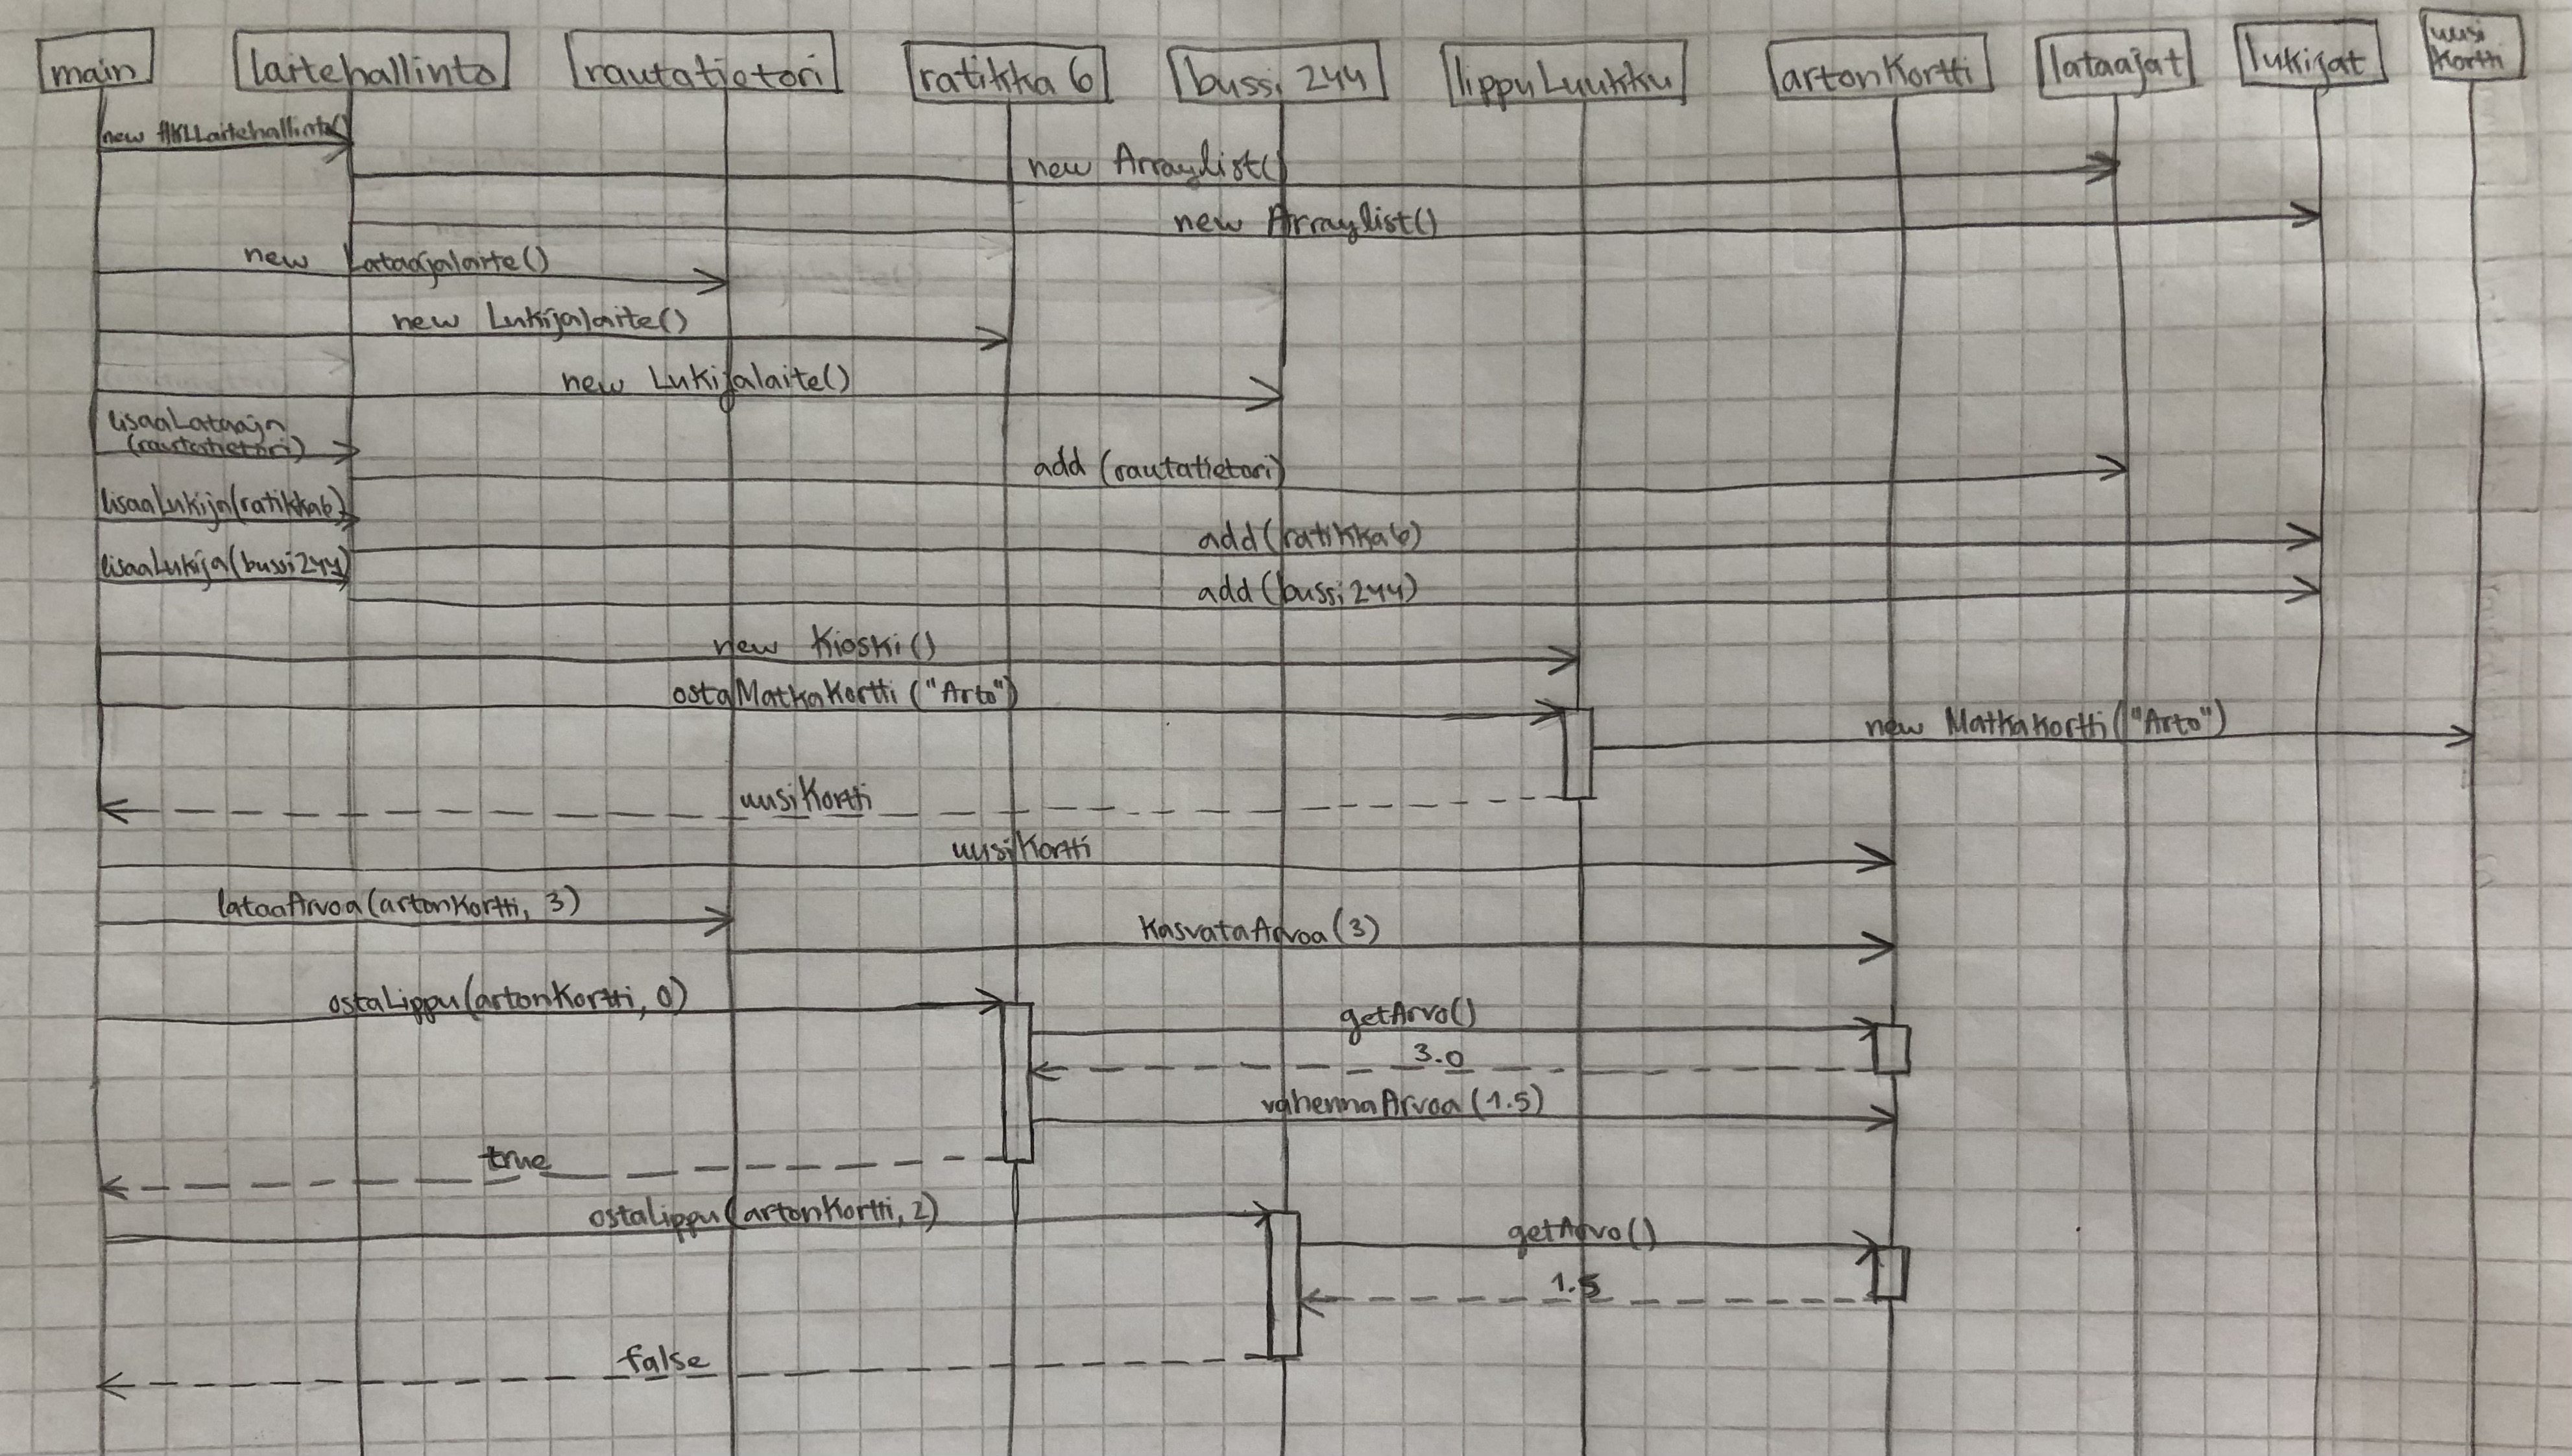 main
laitehallinto
rautatietori
ratikka 6
bussi 244
lippuLuukku
artonKortti
lataajat
lukijat
uusi
Kortti
new HKLLaitehallinto()
new Arraylist()
new Arraylist()
new Lataajalaite()
new Lukijalaite()
new Lukijalaite()
lisaaLataaja
(rautatietori)
add (rautatietori)
lisaaLukija(ratikka6)
add (ratikka6)
lisaaLukija(bussi244)
add (bussi244)
new Kioski()
ostaMatkaKortti ("Arto")
new MatkaKortti ("Arto")
uusiKortti
uusiKortti
lataaArvoa(artonKortti, 3)
kasvataArvoa (3)
ostaLippu(artonKortti, 0)
getArvo()
3.0
vahennaArvoa (1.5)
true
ostaLippu(artonKortti, 2)
getArvo()
1.5
false